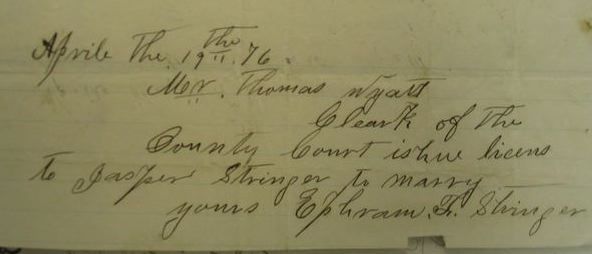 Aprile the 19th 76.
Mr. Thomas Wyatt
Cleark of the
County Court ishue licens
to Jasper Stringer to marry
yours Ephram F. Stringer